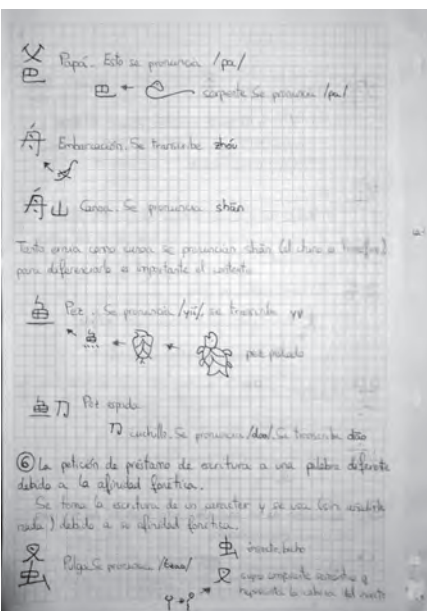 父 Papá. Esto se pronuncia /pa/
巴
巴 ← serpiente Se pronuncia /pa/
舟 Embarcación. Se transcribe zhōu
舟山 Canoa. Se pronuncia shān
Tanto como canoa se pronuncian shān (el chino es
para diferenciarlo es importante el contexto
鱼 Pez. Se pronuncia /yü/, se transcribe
pez
鱼刀 Pez espada
刀 cuchillo. Se pronuncia /dao/. Se transcribe dāo
⑥ La petición de préstamo de escritura a una palabra diferente
debido a la afinidad fonética.
Se toma la escritura de un carácter y se usa (sin añadirle
nada) debido a su afinidad fonética.
Pulga. Se pronuncia
虫 insecto, bicho
cuyo componente semántico
representa la cabeza del